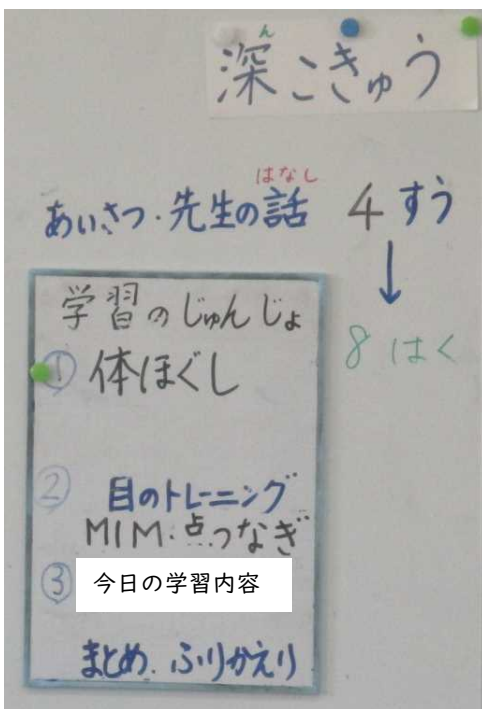 深こきゅう
ん
あいさつ・先生の話
はなし
4 すう
↓
8 はく
学習のじゅんじょ
① 体ほぐし
② 目のトレーニング
MIM・点つなぎ
③ 今日の学習内容
まとめ・ふりかえり